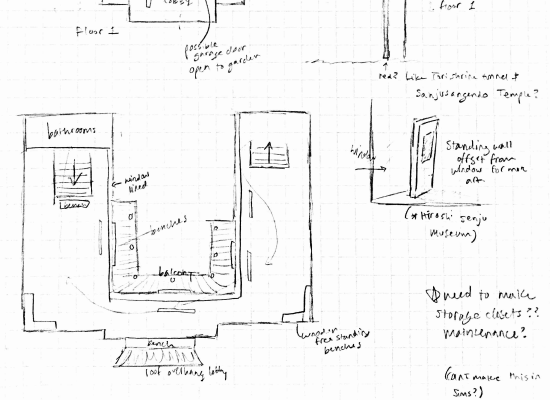 Lobby
Floor 1
possible
garage door
open to garden
floor 1
red? Like Torii shrine tunnel &
Sanjusangendo Temple?
bathrooms
window
lined
benches
balcony
bench
look overhang lobby
wooden
free standing
benches
window
Standing wall
offset from
window for more
art
(@ Hiroshi Senju
Museum)
need to make
storage closets??
maintenance?
(can't make this in
Sims?)